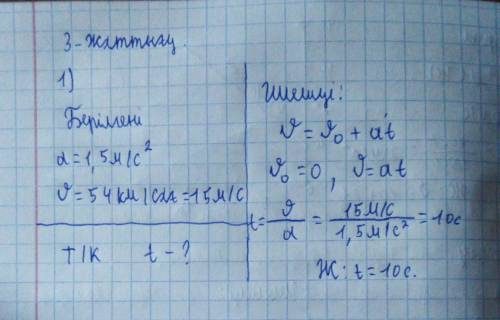 3-жаттығу.
1)
Берілгені
a = 1,5 м/с²
𝜗 = 54 км/сағ = 15 м/с
Т/К t - ?
Шешуі:
𝜗 = 𝜗₀ + at
𝜗₀ = 0, 𝜗 = at
t = 𝜗/a = 15 м/с / 1,5 м/с² = 10 с
Ж: t = 10 с.